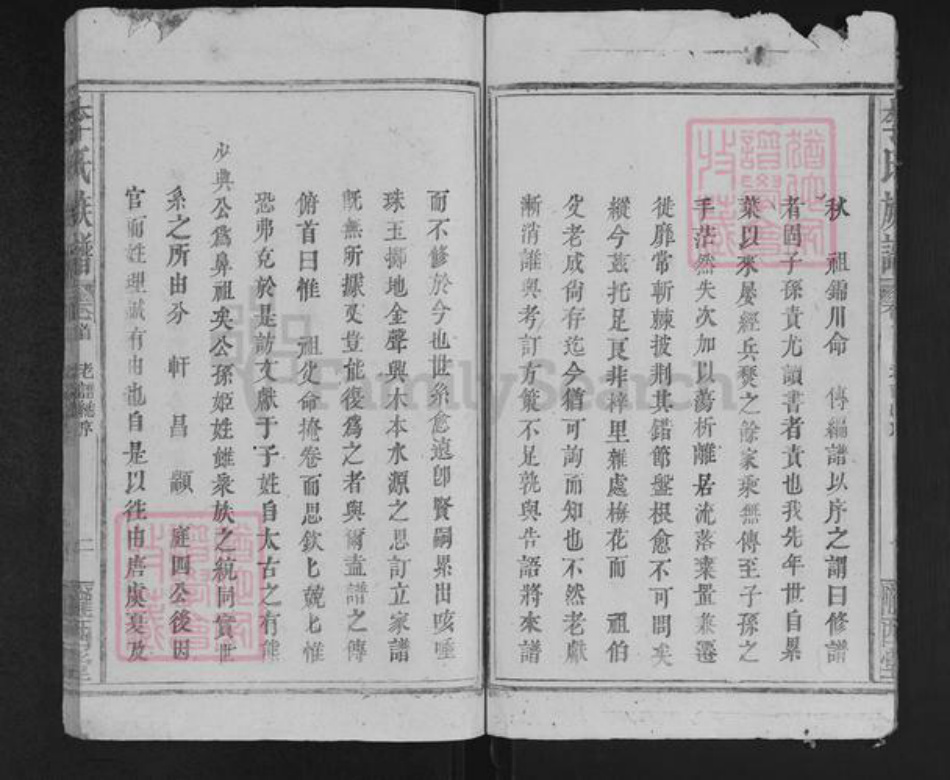 秋　祖錦川命　傳編譜以序之謂曰修譜
者固子孫責尤讀書者責也我先年世自累
葉以來屡經兵燹之餘家乘無傳至子孫之
手茫然失次加以蕩析離居流落業置兼遷
徙靡常斬棘披荆其錯節盤根愈不可問矣
縱今茲托足更非梓里雜處梅花而　祖伯
父老成尙存迄今猶可詢而知也不然老獻
漸消誰與考訂方策不足孰與告語將來譜
而不修於今也世系愈遠卽賢嗣累出咳唾
珠玉擲地金聲興木本水源之思訂立家譜
旣無所據又豈能復爲之者與爾盍譜之傳
俯首曰惟　祖父命掩卷而思欽匕兢匕惟
恐弗克於是訪文獻于子姓自太古之有熊
少典公爲鼻祖矣公孫姬姓雖衆族之統同實世
系之所由分　軒　昌　顓　庭四公後因
官而姓理誠有由也自是以徃由唐虞夏及
李氏族譜
卷首
老譜總序
二
隴西堂
李氏族譜
隴西堂
FamilySearch